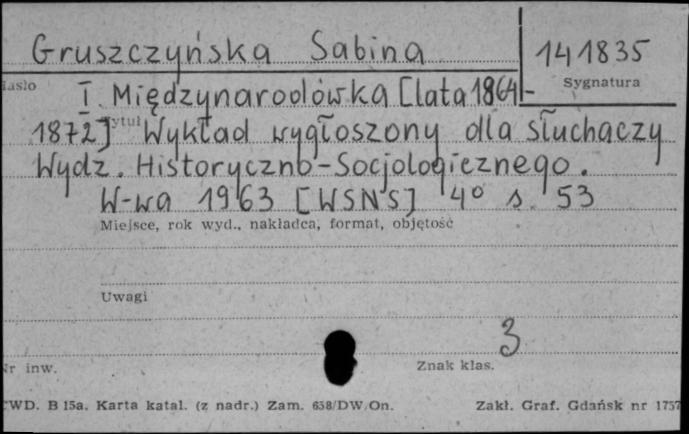 Gruszczyńska Sabina
141835
Hasło
Sygnatura
I Międzynarodówka [lata 1864-
Tytuł
1872] Wykład wygłoszony dla słuchaczy
Wydz. Historyczno-Socjologicznego.
W-wa 1963 [WSNS] 4° s. 53
Miejsce, rok wyd., nakładca, format, objętość
Uwagi
3
Nr inw.
Znak klas.
PWD. B 15a. Karta katal. (z nadr.) Zam. 658/DW/On.
Zakł. Graf. Gdańsk nr 1757